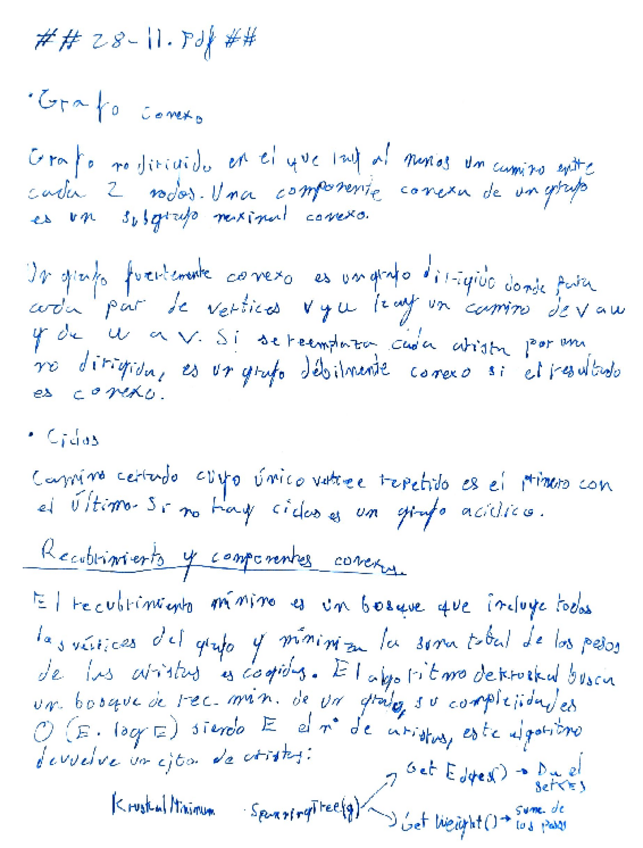 ## 28-11.Pdf ##
• Grafo conexo
Grafo no dirigido en el que hay al menos un camino entre
cada 2 nodos. Una componente conexa de un grafo
es un subgrafo maximal conexo.
Un grafo fuertemente conexo es un grafo dirigido donde para
cada par de vertices v y u hay un camino de v a u
y de u a v. Si se reemplaza cada arista por una
no dirigida, es un grafo débilmente conexo si el resultado
es conexo.
• Ciclos
Camino cerrado cuyo único vertice repetido es el primero con
el último. Si no hay ciclos es un grafo acíclico.
Recubrimiento y componentes conexas
El recubrimiento mínimo es un bosque que incluye todos
los vértices del grafo y minimiza la suma total de los pesos
de las aristas escogidas. El algoritmo de kruskal busca
un bosque de rec. min. de un grafo, su complejidad es
O(E. log E) siendo E el nº de aristas, este algoritmo
devuelve un cjto. de aristas:
Get Edges() → Da el
Set<E>
KruskalMinimum SpanningTree(g)
Get Weight() → suma de
los pesos